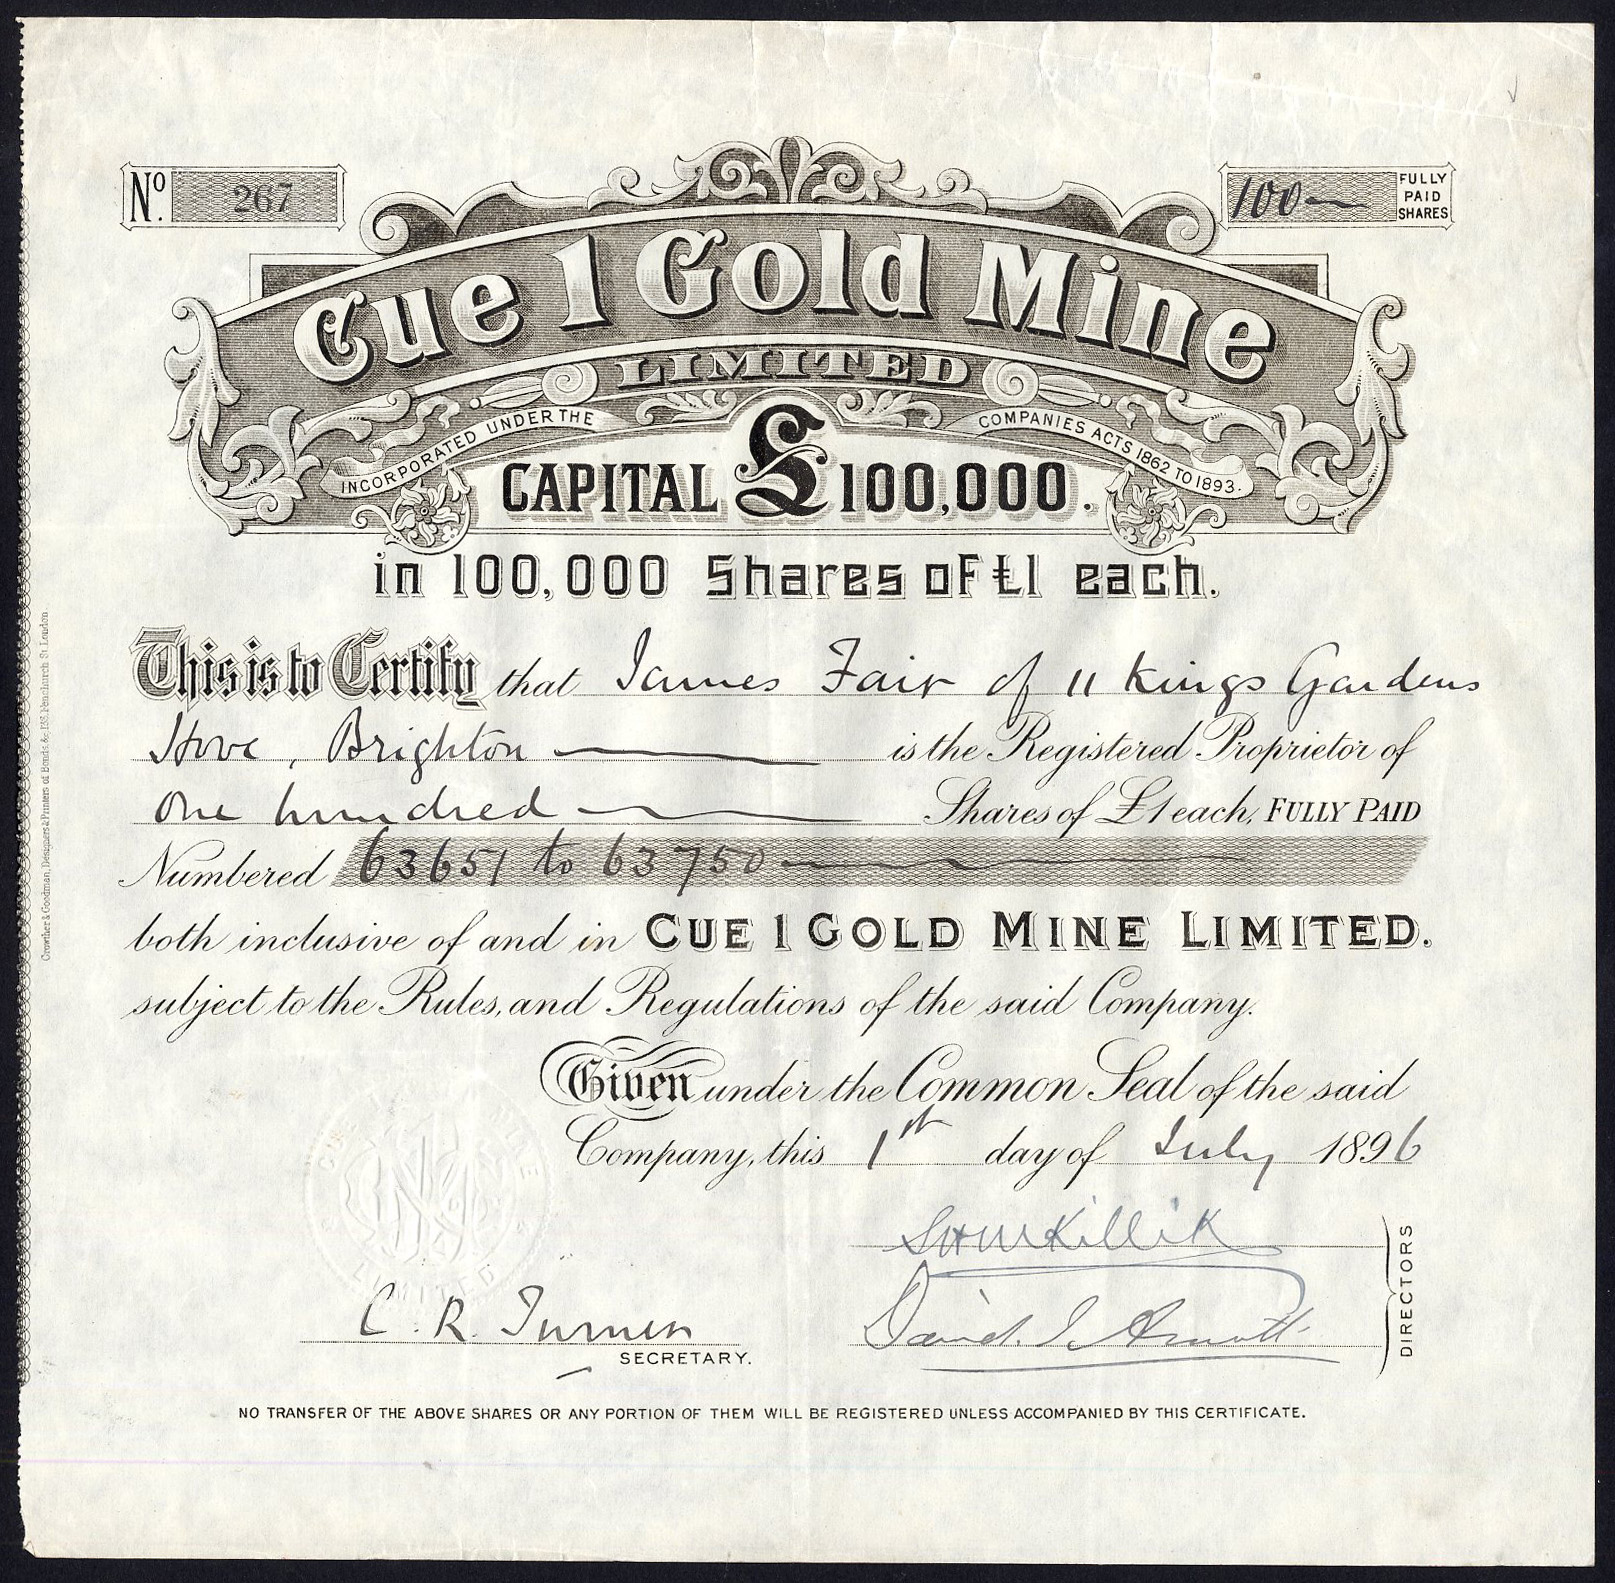 No. 267
100 FULLY PAID SHARES
Cue 1 Gold Mine
LIMITED
INCORPORATED UNDER THE COMPANIES ACTS 1862 TO 1893.
CAPITAL £100,000.
in 100,000 Shares of £1 each.
This is to Certify that James Fair of 11 Kings Gardens
Hove, Brighton is the Registered Proprietor of
One hundred Shares of £1 each, FULLY PAID
Numbered 63651 to 63750
both inclusive of and in CUE 1 GOLD MINE LIMITED.
subject to the Rules, and Regulations of the said Company.
Given under the Common Seal of the said
Company, this 1st day of July 1896
Killik
David
DIRECTORS
C. R. Turner
SECRETARY.
LIMITED
NO TRANSFER OF THE ABOVE SHARES OR ANY PORTION OF THEM WILL BE REGISTERED UNLESS ACCOMPANIED BY THIS CERTIFICATE.
Crowther & Goodman, Designers & Printers of Bonds &c. Fenchurch St. London